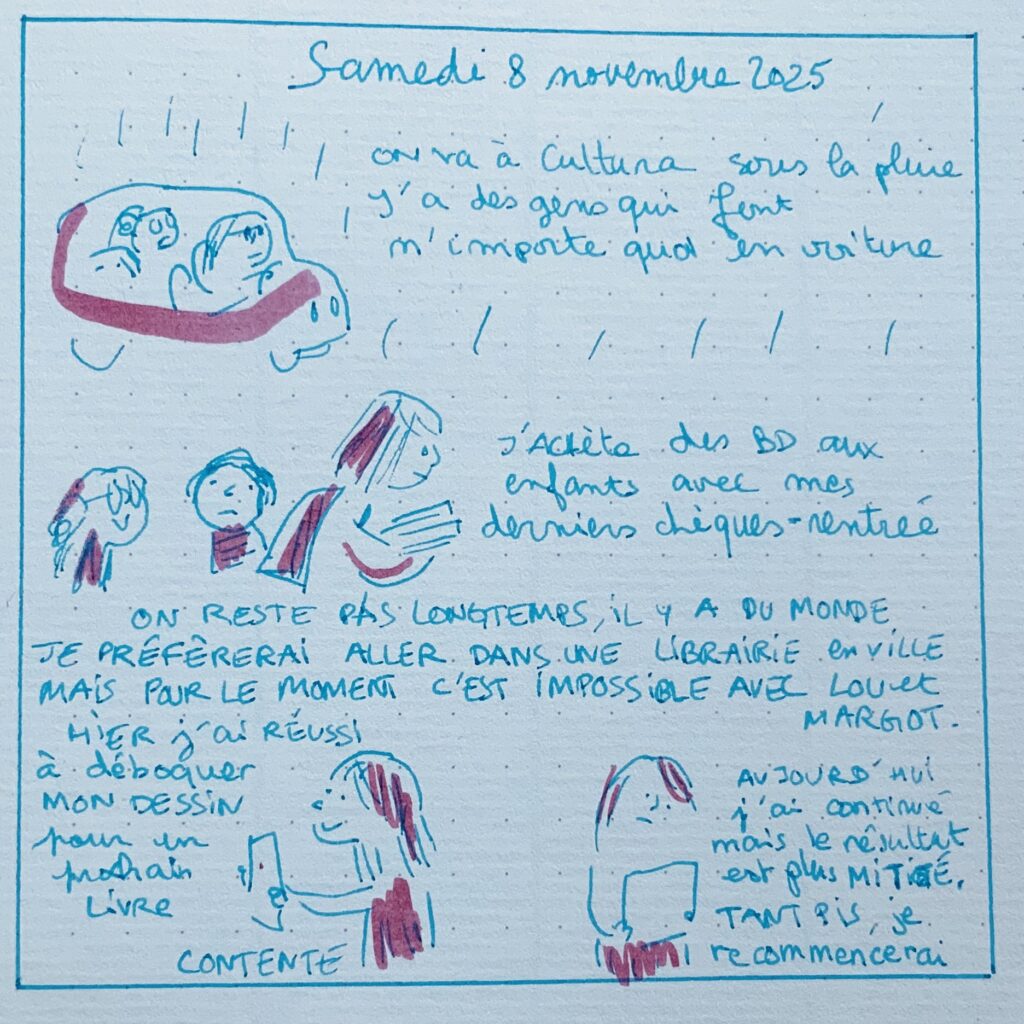 Samedi 8 novembre 2025
on va à Cultura sous la pluie
y'a des gens qui font
n'importe quoi en voiture
J'ACHÈTE des BD aux
enfants avec mes
derniers chèques-rentrée
ON RESTE PAS LONGTEMPS, iL Y A DU MONDE
JE PRÉFÈRERAI ALLER DANS UNE LIBRAIRIE en VILLE
MAIS POUR LE MOMENT C'EST IMPOSSIBLE AVEC LOU et
MARGOT.
HIER j'ai RÉUSSI
à déboquer
MON DESSIN
pour un
prochain
LIVRE
CONTENTE
AUJOURD'HUI
j'ai continué
mais le résultat
est plus MITIGÉ,
TANT PIS, je
recommencerai